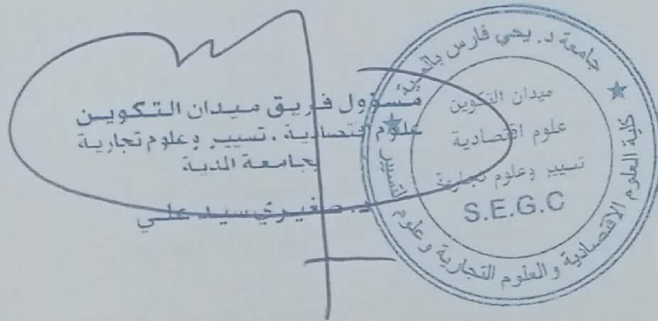 مسؤول فريق ميدان التكوين
علوم اقتصادية . تسيير وعلوم تجارية
بجامعة المدية
د. صغيري سيد علي
جامعة د. يحي فارس بالمدية
كلية العلوم الاقتصادية و العلوم التجارية و علوم التسيير
ميدان التكوين
علوم اقتصادية
تسيير وعلوم تجارية
S.E.G.C